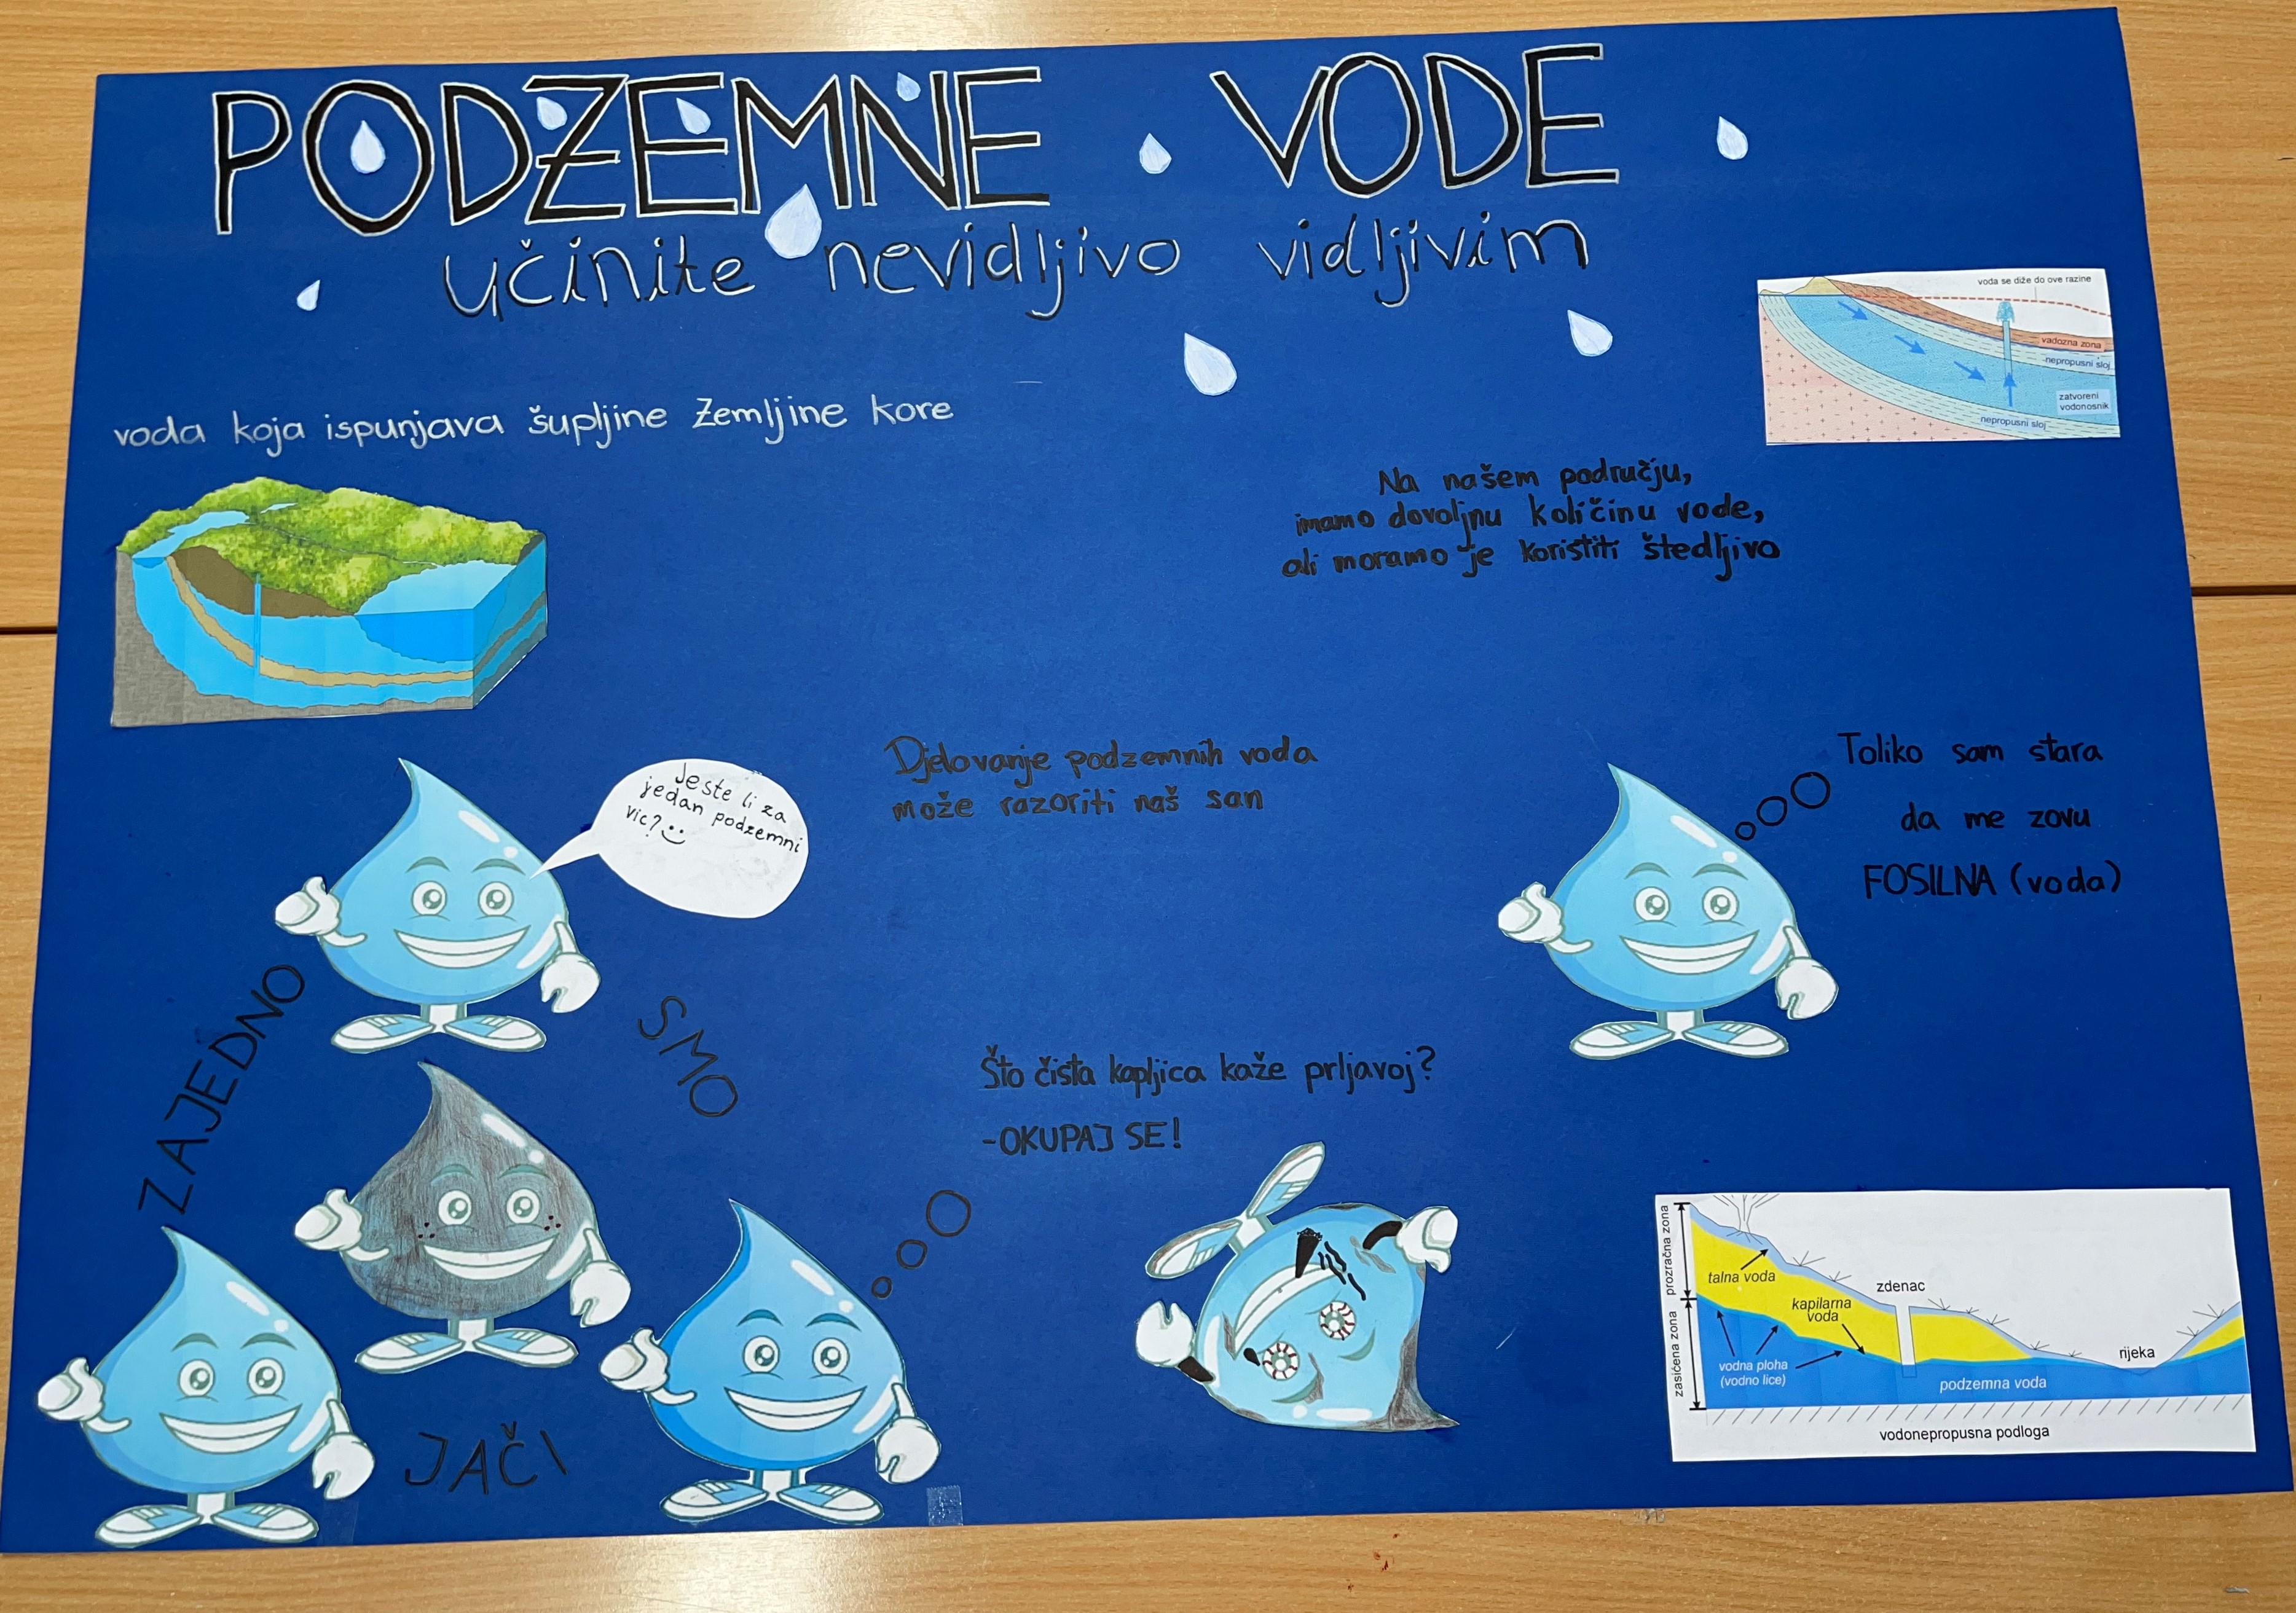 PODZEMNE VODE
učinite nevidljivo vidljivim
voda koja ispunjava šupljine Zemljine kore
voda se diže do ove razine
vadozna zona
nepropusni sloj
zatvoreni
vodonosnik
nepropusni sloj
Na našem području,
imamo dovoljnu količinu vode,
ali moramo je koristiti štedljivo
Jeste li za
jedan podzemni
vic?
Djelovanje podzemnih voda
može razoriti naš san
Toliko sam stara
da me zovu
FOSILNA (voda)
ZAJEDNO
SMO
JAČI
Što čista kapljica kaže prljavoj?
-OKUPAJ SE!
prozračna zona
zasićena zona
talna voda
kapilarna
voda
zdenac
vodna ploha
(vodno lice)
podzemna voda
rijeka
vodonepropusna podloga